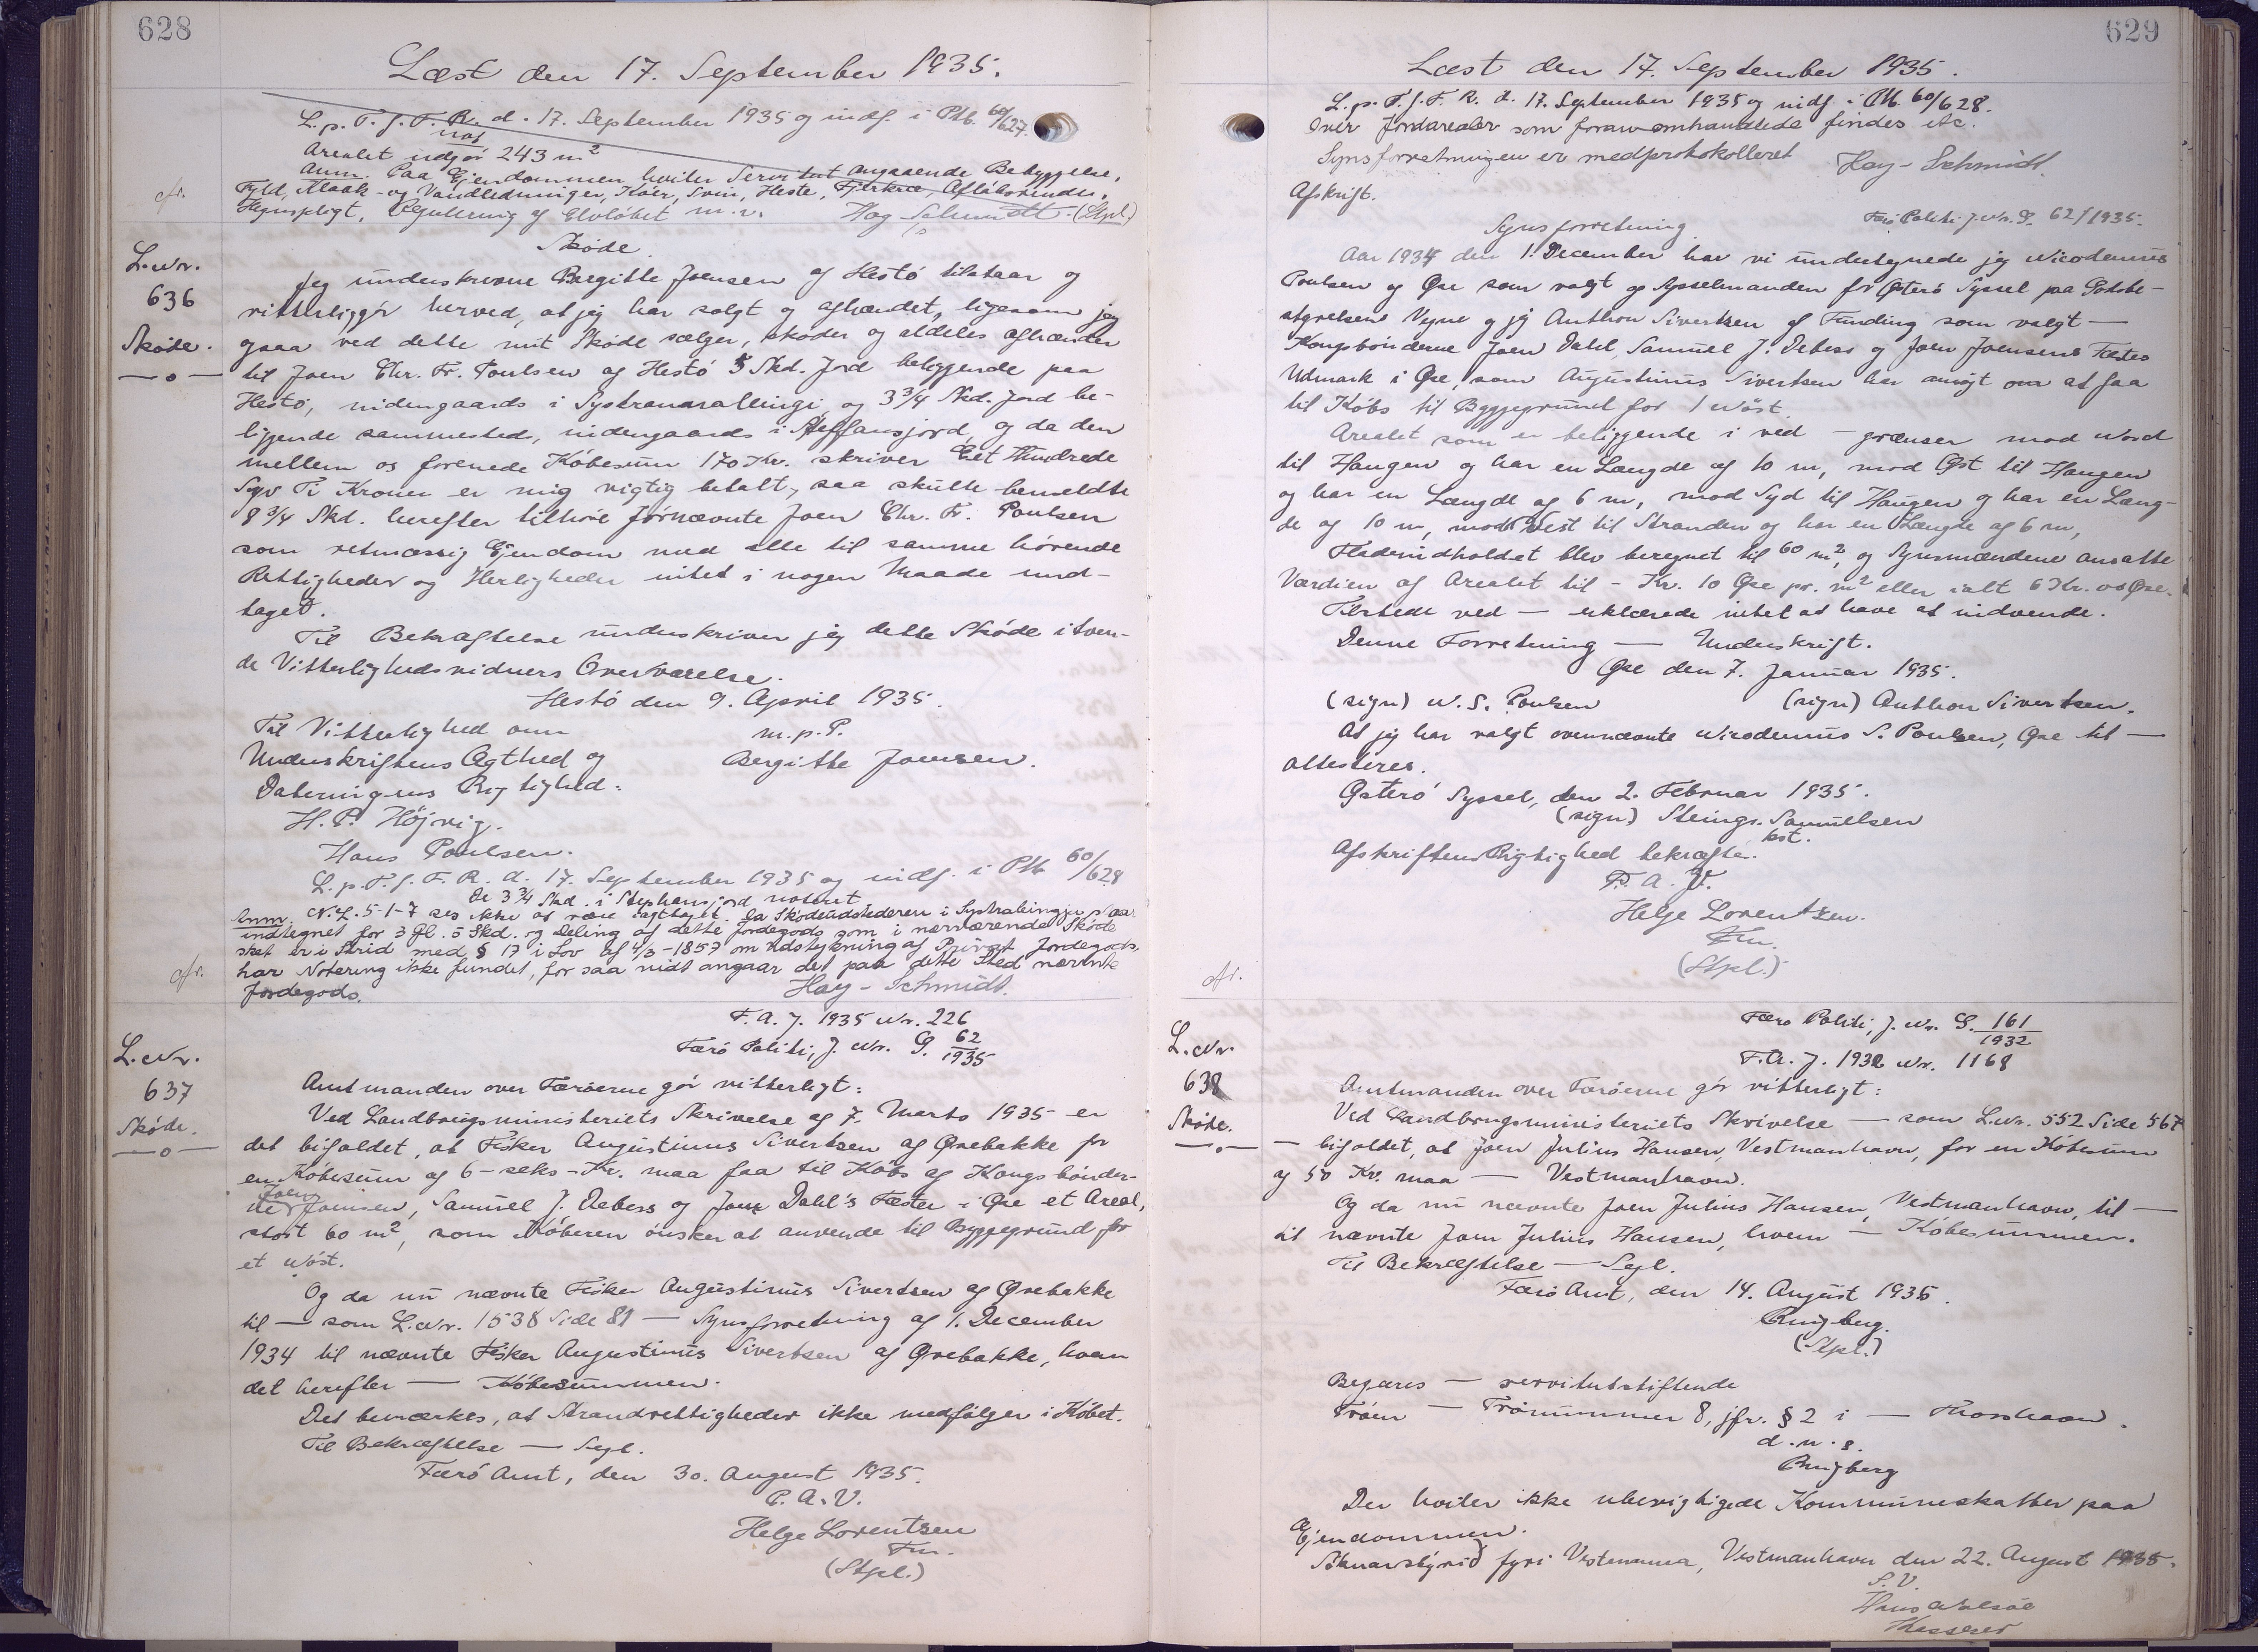 628
Læst den 17. September 1935.
L. p. T. f. F. R. d. 17. September 1935 og indf. i Ptk. 60/627.
Arealet udgör 243 m²
Anm. Paa Ejendommen hviler Servitut angaaende Bebyggelse,
Fyld, Kloak- og Vandledninger, Köer, Svin, Heste, Fjerkræ, Aflöbsrender,
Hegnspligt, Regulering af Elvlöbet m. v. Hay-Schmidt. (Stpl.)
cfr.
Skøde.
L. Nr.
636
Skøde.
Jeg underskrevne Bergitte Joensen af Hestö tilstaar og
vitterliggör herved, at jeg har solgt og afhændet, ligesom jeg
ogsaa ved dette mit Skøde sælger, skøder og aldeles afhænder
til Joen Chr. Fr. Poulsen af Hestö 5 Skd. Jord beliggende paa
Hestö, indengaards i Systranarallingi og 3 3/4 Skd. Jord be-
liggende sammesteds, indengaards i Steffansjord, og da den
mellem os forenede Köbesum 170 Kr. skriver Eet Hundrede
Syv Ti Kroner er mig rigtig betalt, saa skulle bemeldte
8 3/4 Skd. herefter tilhöre förnævnte Joen Chr. Fr. Poulsen
som retmæssig Ejendom med alle til samme hörende
Rettigheder og Herligheder intet i nogen Maade und-
taget.
Til Bekræftelse underskriver jeg dette Skøde i tven-
de Vitterlighedsvidners Overværelse.
Hestö den 9. April 1935.
Til Vitterlighed om m. p. P.
Underskriftens Ægthed og Bergitte Joensen.
Dateringens Rigtighed:
H. P. Höjvig.
Hans Poulsen.
L. p. T. f. F. R. d. 17. September 1935 og indf. i Ptk 60/628
De 3 3/4 Skd. i Stephansjord noteret
Anm. N. L. 5-1-7 ses ikke at være iagttaget. Da Skødeudstederen i Systralingju staar
indtegnet for 3 Gl. 5 Skd. og Deling af dette Jordegods som i nærværende Skøde
sket er i Strid med § 17 i Lov af 4/3-1857 om Udstykning af Privat Jordegods,
har Notering ikke fundet, for saa vidt angaar det paa dette Sted nævnte
Jordegods. Hay-Schmidt.
cfr.
F. A. J. 1935 Nr. 226
Færö Politi, J. Nr. G. 62/1935
L. Nr.
637
Skøde.
Amtmanden over Færöerne gör vitterligt:
Ved Landbrugsministeriets Skrivelse af 7. Marts 1935 er
det bifaldet, at Fisker Augustinus Sivertsen af Ørebakke for
en Köbesum af 6 - seks - Kr. maa faa til Købs af Kongsbönder-
ne Joen Joensen, Samuel J. Debess og Joen Dahl's Fæster i Øre et Areal,
stort 60 m², som Köberen önsker at anvende til Byggegrund for
et Nöst.
Og da nu nævnte Fisker Augustinus Sivertsen af Ørebakke
til — som L. Nr. 1538 Side 81 — Synsforretning af 1. December
1934 til nævnte Fisker Augustinus Sivertsen af Ørebakke, hvem
det herefter — Köbesummen.
Det bemærkes, at Strandrettigheder ikke medfölger i Köbet.
Til Bekræftelse — Segl.
Færö Amt, den 30. August 1935.
P. A. V.
Helge Lorentzen
Fm.
(Stpl.)
629
Læst den 17. September 1935.
L. p. T. f. F. R. d. 17. September 1935 og indf. i Ptk. 60/628.
Over Jordarealer som foran omhandlede findes etc.
Synsforretningen er medprotokolleret Hay-Schmidt.
Afskrift.
Synsforretning. Færö Politi J. Nr. G. 62/1935.
Aar 1934 den 1. December har vi undertegnede jeg Nicodemus
Poulsen og Øre som valgt af Sysselmanden for Østerö Syssel paa Godsbe-
styrelsens Vegne og jeg Anthon Sivertsen af Funding som valgt —
Kongsbönderne Joen Dahl, Samuel J. Debess og Joen Joensens Fæstes
Udmark i Øre, som Augustinus Sivertsen har ansögt om at faa
til Købs til Byggegrund for 1 Nöst.
Arealet som er beliggende i ved — grænser mod Nord
til Haugen og har en Længde af 10 m, mod Øst til Haugen
og har en Længde af 6 m, mod Syd til Haugen og har en Læng-
de af 10 m, mod Vest til Stranden og har en Længde af 6 m,
Fladeindholdet blev beregnet til 60 m², og Synsmændene ansatte
Værdien af Arealet til - Kr. 10 Øre pr. m² eller ialt 6 Kr. 00 Øre.
Tilstede ved — erklærede intet at have at indvende.
Denne Forretning — Underskrift.
Øre den 7. Januar 1935.
(sign) N. S. Poulsen (sign) Anthon Sivertsen.
At jeg har valgt ovennævnte Nicodemus S. Poulsen, Øre til —
attesteres.
Østerö Syssel, den 2. Februar 1935.
(sign) Steingr. Samuelsen
kst.
Afskriftens Rigtighed bekræftes.
P. A. V.
Helge Lorentzen.
Fm.
(Stpl.)
cfr.
Færö Politi, J. Nr. G. 161/1932
F. A. J. 1932 Nr. 1168
L. Nr.
638
Skøde.
Amtmanden over Færöerne gör vitterligt:
Ved Landbrugsministeriets Skrivelse — som L. Nr. 552 Side 567
— bifaldet, at Joen Julius Hansen, Vestmanhavn, for en Köbesum
af 50 Kr. maa — Vestmanhavn.
Og da nu nævnte Joen Julius Hansen, Vestmanhavn, til —
til nævnte Joen Julius Hansen, hvem — Köbesummen.
Til Bekræftelse — Segl.
Færö Amt, den 14. August 1935.
Ringberg.
(Stpl.)
Begæres — servitutstiftende
Tröen — Trönummer 8, jfr. § 2 i — Thorshavn.
d. u. s.
Ringberg
Der hviler ikke uberigtigede Kommuneskatter paa
Ejendommen.
Sóknarstýrið fyri Vestmanna, Vestmanhavn den 22. August 1935.
S. V.